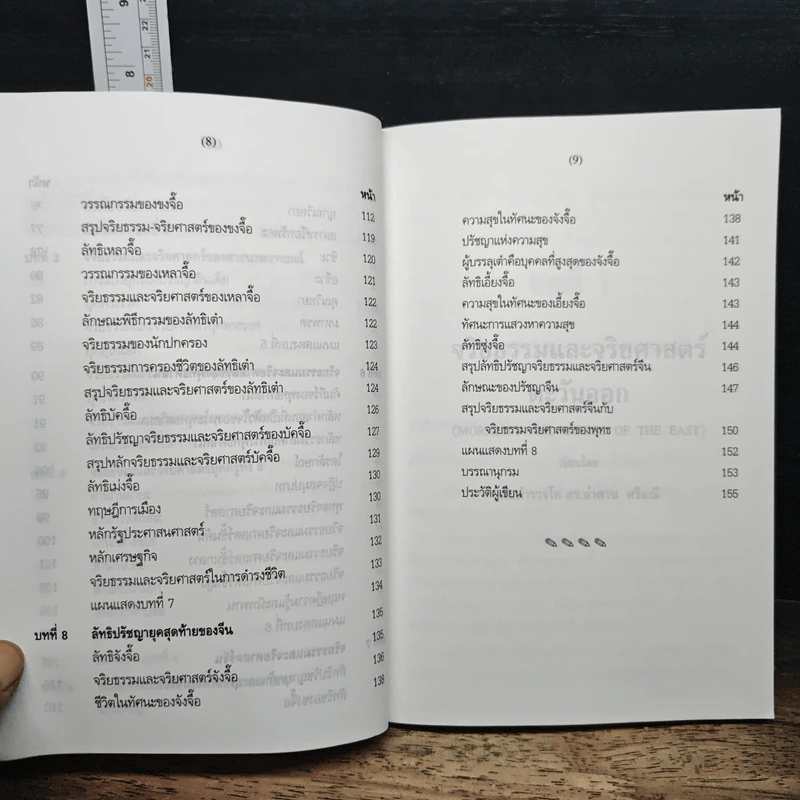 (8)
หน้า
วรรณกรรมของขงจื๊อ 112
สรุปจริยธรรม-จริยศาสตร์ของขงจื๊อ 119
ลัทธิเหลาจื๊อ 120
วรรณกรรมของเหลาจื๊อ 121
จริยธรรมและจริยศาสตร์ของเหลาจื๊อ 122
ลักษณะพิธีกรรมของลัทธิเต๋า 122
จริยธรรมของนักปกครอง 123
จริยธรรมการครองชีวิตของลัทธิเต๋า 124
สรุปจริยธรรมและจริยศาสตร์ของลัทธิเต๋า 124
ลัทธิบัคจื๊อ 126
ลัทธิปรัชญาจริยธรรมและจริยศาสตร์ของบัคจื๊อ 127
สรุปหลักจริยธรรมและจริยศาสตร์บัคจื๊อ 129
ลัทธิเม่งจื๊อ 130
ทฤษฎีการเมือง 130
หลักรัฐประศาสนศาสตร์ 131
หลักเศรษฐกิจ 132
จริยธรรมและจริยศาสตร์ในการดำรงชีวิต 133
แผนแสดงบทที่ 7 134
บทที่ 8 ลัทธิปรัชญายุคสุดท้ายของจีน 135
ลัทธิจังจื๊อ 135
จริยธรรมและจริยศาสตร์จังจื๊อ 136
ชีวิตในทัศนะของจังจื๊อ 138
(9)
หน้า
ความสุขในทัศนะของจังจื๊อ 138
ปรัชญาแห่งความสุข 141
ผู้บรรลุเต๋าคือบุคคลที่สูงสุดของจังจื๊อ 142
ลัทธิเอี้ยงจื๊อ 143
ความสุขในทัศนะของเอี้ยงจื๊อ 143
ทัศนะการแสวงหาความสุข 144
ลัทธิซุ่งจื๊อ 144
สรุปลัทธิปรัชญาจริยธรรมและจริยศาสตร์จีน 146
ลักษณะของปรัชญาจีน 147
สรุปจริยธรรมและจริยศาสตร์จีนกับ
จริยธรรมจริยศาสตร์ของพุทธ 150
แผนแสดงบทที่ 8 152
บรรณานุกรม 153
ประวัติผู้เขียน 155